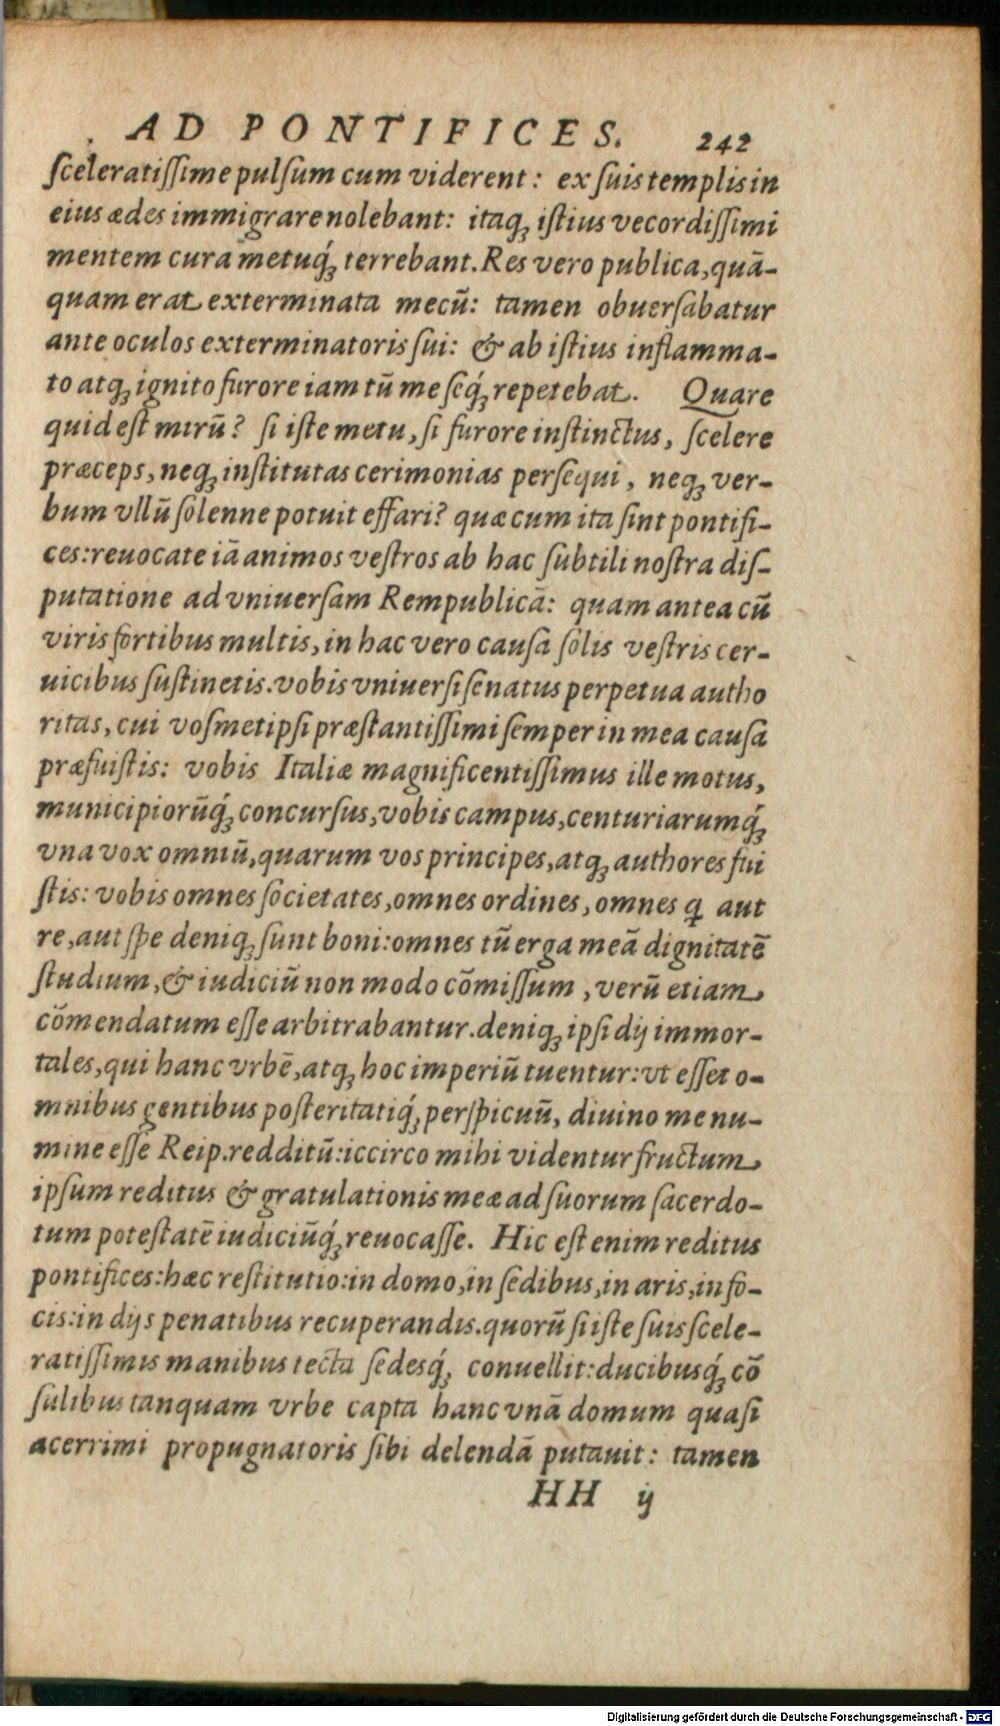 AD PONTIFICES. 242
ſceleratiſſime pulſum cum viderent: ex ſuis templis in
eius ædes immigrare nolebant: itaq; iſtius vecordiſſimi
mentem cura metuq́; terrebant. Res vero publica, quã-
quam erat exterminata mecũ: tamen obuerſabatur
ante oculos exterminatoris ſui: & ab iſtius inflamma-
to atq; ignito furore iam tũ me ſeq́; repetebat. Quare
quid eſt mirũ? ſi iſte metu, ſi furore inſtinctus, ſcelere
præceps, neq; inſtitutas cerimonias perſequi, neq; ver-
bum vllũ ſolenne potuit effari? quæ cum ita ſint pontifi-
ces: reuocate iã animos veſtros ab hac ſubtili noſtra diſ-
putatione ad vniuerſam Rempublicã: quam antea cũ
viris fortibus multis, in hac vero cauſa ſolis veſtris cer-
uicibus ſuſtinetis. vobis vniuerſi ſenatus perpetua autho
ritas, cui voſmetipſi præſtantiſſimi ſemper in mea cauſa
præfuiſtis: vobis Italiæ magnificentiſſimus ille motus,
municipiorũq́; concurſus, vobis campus, centuriarumq́;
vna vox omniũ, quarum vos principes, atq; authores fui
ſtis: vobis omnes ſocietates, omnes ordines, omnes ꝗ aut
re, aut ſpe deniq; ſunt boni: omnes tũ erga meã dignitatẽ
ſtudium, & iudiciũ non modo cõmiſſum, verũ etiam
cõmendatum eſſe arbitrabantur. deniq; ipſi dij immor-
tales, qui hanc vrbẽ, atq; hoc imperiũ tuentur: vt eſſet o-
mnibus gentibus poſteritatiq́; perſpicuũ, diuino me nu-
mine eſſe Reip. redditũ: iccirco mihi videntur fructum
ipſum reditus & gratulationis meæ ad ſuorum ſacerdo-
tum poteſtatẽ iudiciũq́; reuocaſſe. Hic eſt enim reditus
pontifices: hæc reſtitutio: in domo, in ſedibus, in aris, in fo-
cis: in dijs penatibus recuperandis. quorũ ſi iſte ſuis ſcele-
ratiſſimis manibus tecta ſedesq́; conuellit: ducibusq́; cõ
ſulibus tanquam vrbe capta hanc vnã domum quaſi
acerrimi propugnatoris ſibi delendã putauit: tamen
HH ij
Digitalisierung gefördert durch die Deutsche Forschungsgemeinschaft - DFG